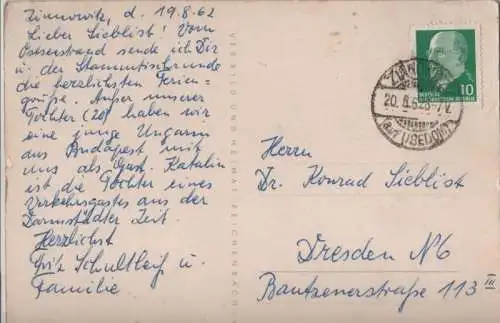 Zinnowitz, d. 19.8.62
Lieber Sieblist! Vom
Ostseestrand sende ich Dir
u. der Stammtischrunde
die herzlichsten Ferien-
grüße. Außer unserer
Tochter (20) haben wir
eine junge Ungarin
aus Budapest mit
uns als Gast. Katalin
ist die Tochter eines
Verkehrsgastes aus der
Darmstädter Zeit.
Herzlichst
Fritz Schultheiß u.
Familie
VERLAG BILD UND HEIMAT REICHENBACH
10
ZINNOWITZ
20.8.62
a/f USEDOM
Herrn
Dr. Konrad Sieblist
Dresden N6
Bautzenerstraße 113 III